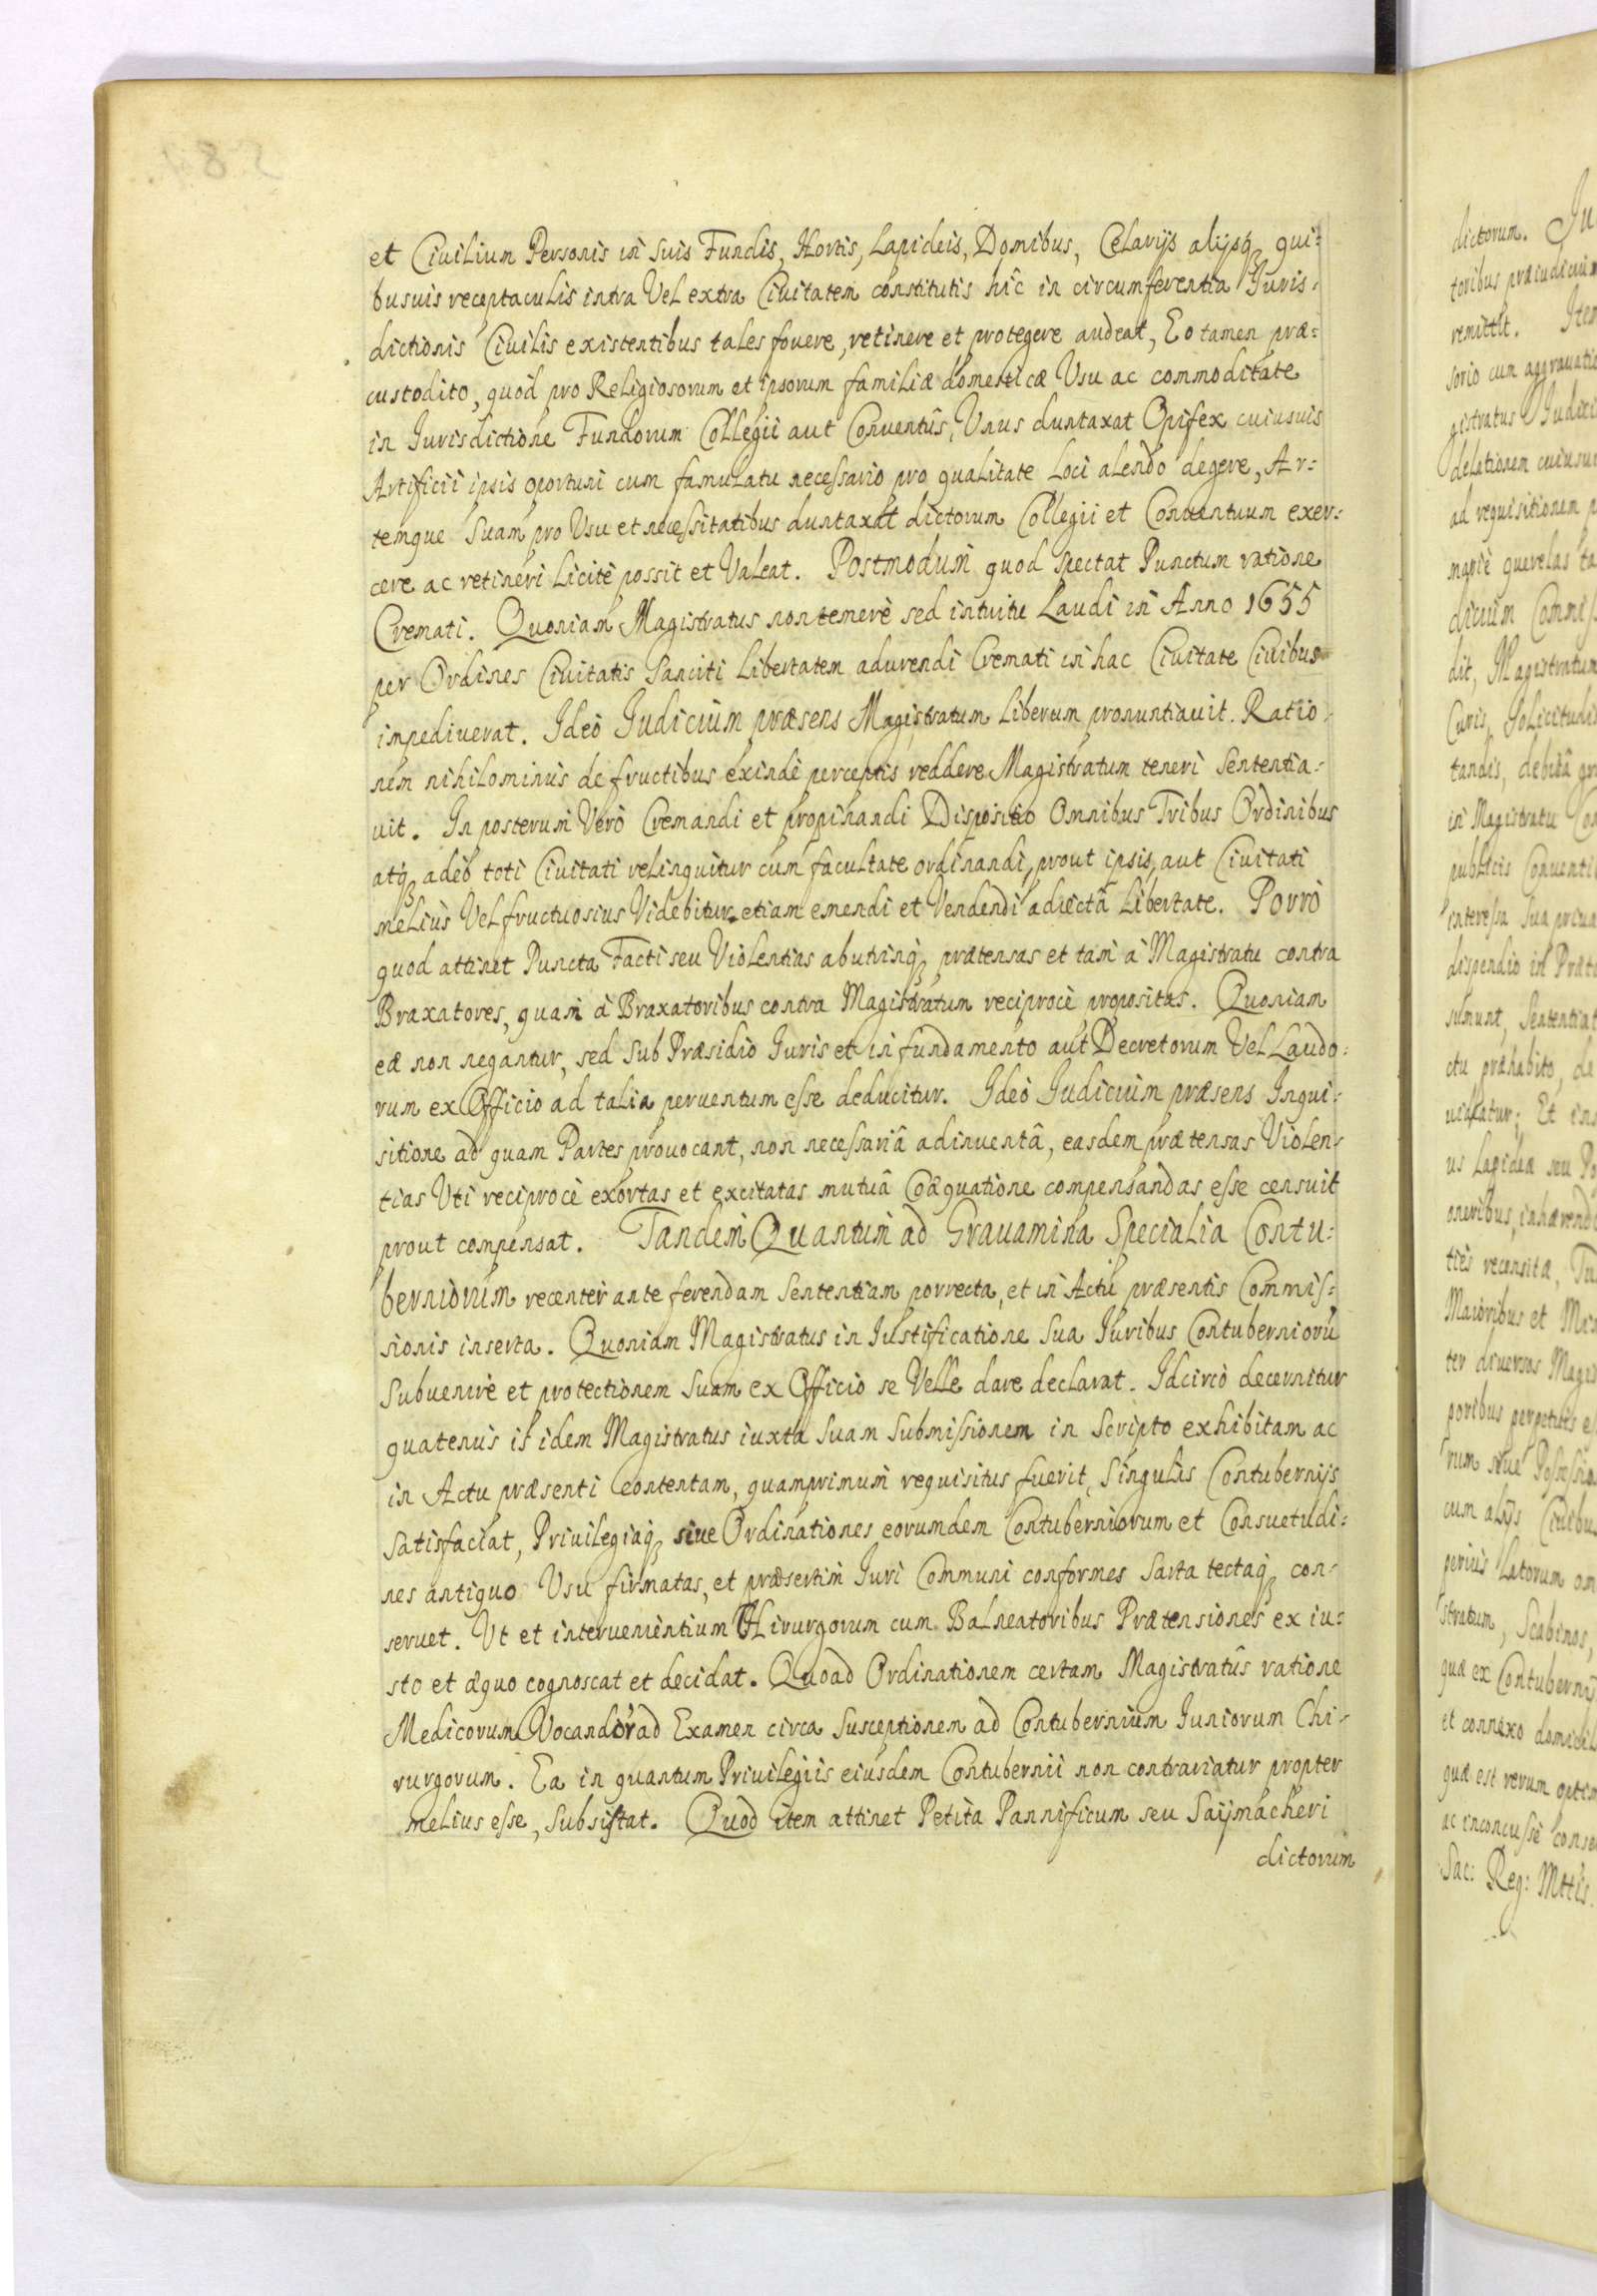 et Ciuilium Personis in suis Fundis, Hortis, Lapideis, Domibus, Celarijs alijsq, qui:
busuis receptaculis intra Vel extra Ciuitatem constitutis hîc in circumferentia Juris:
dictionis Ciuilis existentibus tales fouere, retinere et protegere audeat, Eo tamen præ:
custodito, quod pro Religiosorum et ipsorum familiæ domesticæ Vsu ac commoditate
in Jurisdictione Fundorum Collegii aut Conuentûs, Vnus duntaxat Opifex cuiusuis
Artificii ipsis oportuni cum famulatu necessario pro qualitate Loci alendo degere, Ar:
temque Suam pro Vsu et necessitatibus duntaxat dictorum Collegii et Conuentuum exer:
cere ac retineri Licitè possit et Valeat. Postmodum quod spectat Punctum ratione
Cremati. Quoniam Magistratus non temerè sed intuitu Laudi in Anno 1655
per Ordines Ciuitatis Sanciti Libertatem adurendi Cremati in hac Ciuitate Ciuibus
impediuerat. Ideò Judicium præsens Magistratum Liberum pronuntiauit. Ratio:
nem nihilominùs de fructibus exindè perceptis reddere Magistratum teneri Sententia:
uit. In posterum Verò Cremandi et propinandi Dispositio Omnibus Tribus Ordinibus
atq, adeò toti Ciuitati relinquitur cum facultate ordinandi, prout ipsis, aut Ciuitati
meliùs Vel fructuosius Videbitur, etiam emendi et Vendendi adiectâ Libertate. Porrò
quod attinet Puncta Facti seu Violentias abutrinq, prætensas et tam à Magistratu contra
Braxatores, quam à Braxatoribus contra Magistratum reciprocè propositas. Quoniam
eæ non negantur, sed Sub Præsidio Juris et in fundamento aut Decretorum Vel Laudo:
rum ex Officio ad talia peruentum esse deducitur. Ideò Judicium præsens Inqui:
sitione ad quam Partes prouocant, non necessariâ adinuentâ, easdem prætensas Violen:
tias Vti reciprocè exortas et excitatas mutuâ Coæquatione compensandas esse censuit
prout compensat. Tandem Quantum ad Grauamina Specialia Contu:
berniorum recenter ante ferendam Sententiam porrecta, et in Actu præsentis Commis:
sionis inserta. Quoniam Magistratus in Justificatione Sua Juribus Contuberniorũ
Subuenire et protectionem Suam ex Officio se Velle dare declarat. Idcircò decernitur
quatenus is idem Magistratus iuxta Suam Submissionem in Scripto exhibitam ac
in Actu præsenti contentam, quamprimum requisitus fuerit, Singulis Contubernijs
Satisfaciat, Priuilegiaq, siue Ordinationes eorumdem Contuberniorum et Consuetudi:
nes antiquo Vsu firmatas, et præsertim Juri Communi conformes Sarta tectaq, con:
seruet. Vt et interuenientium Chirurgorum cum Balneatoribus Prætensiones ex iu:
sto et æquo cognoscat et decidat. Quoad Ordinationem certam Magistratûs ratione
Medicorum Vocandor ad Examen circa Susceptionem ad Contubernium Juniorum Chi:
rurgorum. Ea in quantum Priuilegiis eiusdem Contubernii non contrariatur propter
melius esse, Subsistat. Quod item attinet Petita Pannificum seu Saijmacheri
dictorum
dictorum. Ju
toribus præiudicium
remittit. Item
sorio cum aggrauatio
gistratus Judici
delationem cuiusui
ad requisitionem p
mariè querelas ta
dicium Commis
dit, Magistratum
Curis, Solicitudi
tandis, debitâ gr
in Magistratu Co
publicis Conuenti
interesse Sua priua
dispendio in Præt
sumunt, Sententiat
ctu præhabito, de
Et in
us Lapideæ seu Po
oneribus, inhærend
tiès recensitæ, Tu
Maioribus et
ter diuersos Magi
poribus perpetuis e
rum siue Possessio
cum alijs Ciuibus
periùs Latorum om
stratum, Scabinos,
quæ ex Contubernij
et connexo domicil
quæ est rerum optim
ac inconcussè conse
Sac: Reg: Mttis.